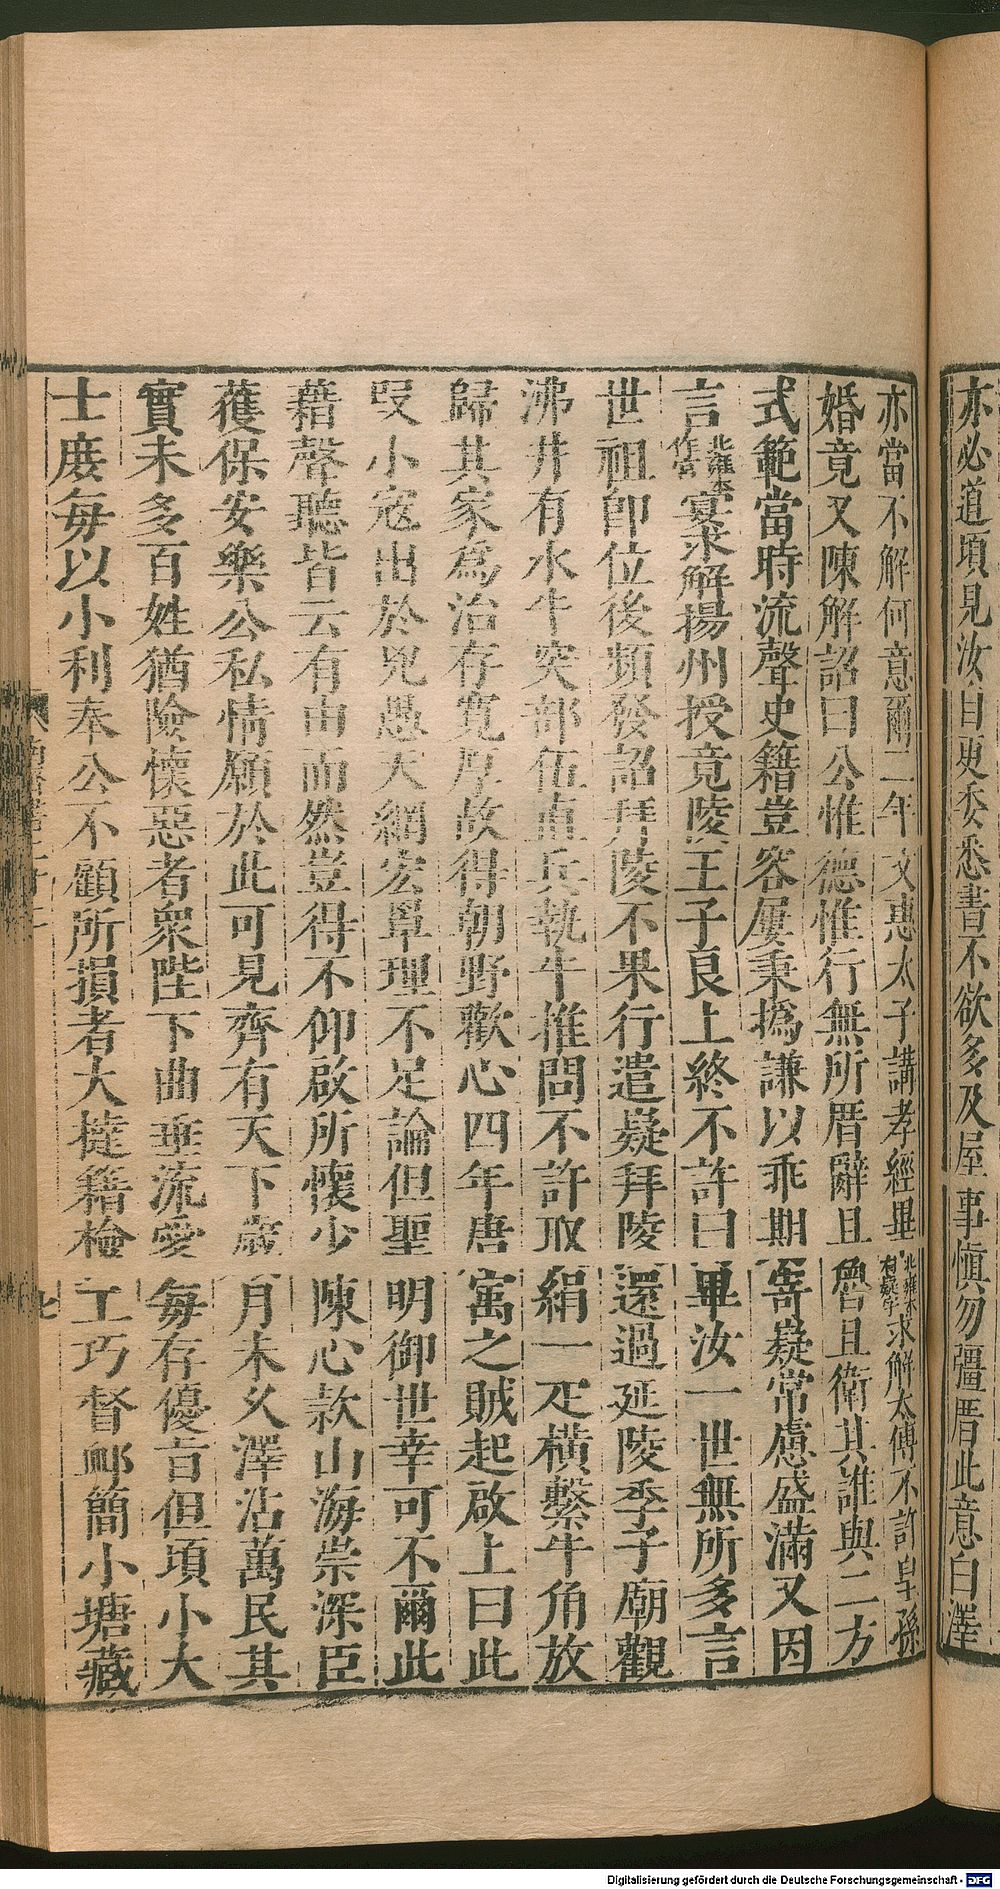 亦必道頃見汝自更委悉書不欲多及屋事慎勿彊厝此意白澤
亦當不解何意爾二年文惠太子講孝經畢北雍本有疑字求解太傅不許皇孫
婚竟又陳解詔曰公惟德惟行無所厝辭且魯且衛其誰與二方
式範當時流聲史籍豈容屢秉撝謙以乖期寄嶷常慮盛滿又因
言北雍本作宮宴求解揚州授竟陵王子良上終不許曰畢汝一世無所多言
世祖卽位後頻發詔拜陵不果行遣嶷拜陵還過延陵季子廟觀
沸井有水牛突部伍直兵執牛推問不許取絹一疋橫繫牛角放
歸其家爲治存寬厚故得朝野歡心四年唐㝢之賊起啟上曰此
叚小寇出於兇愚天網宏罩理不足論但聖明御世幸可不爾此
藉聲聽皆云有由而然豈得不仰啟所懷少陳心款山海崇深臣
獲保安樂公私情願於此可見齊有天下歲月未久澤沾萬民其
實未多百姓猶險懷惡者衆陛下曲垂流愛每存優旨但頃小大
士庶每以小利奉公不顧所損者大摙籍檢工巧督邺簡小塘藏
七
Digitalisierung gefördert durch die Deutsche Forschungsgemeinschaft - DFG